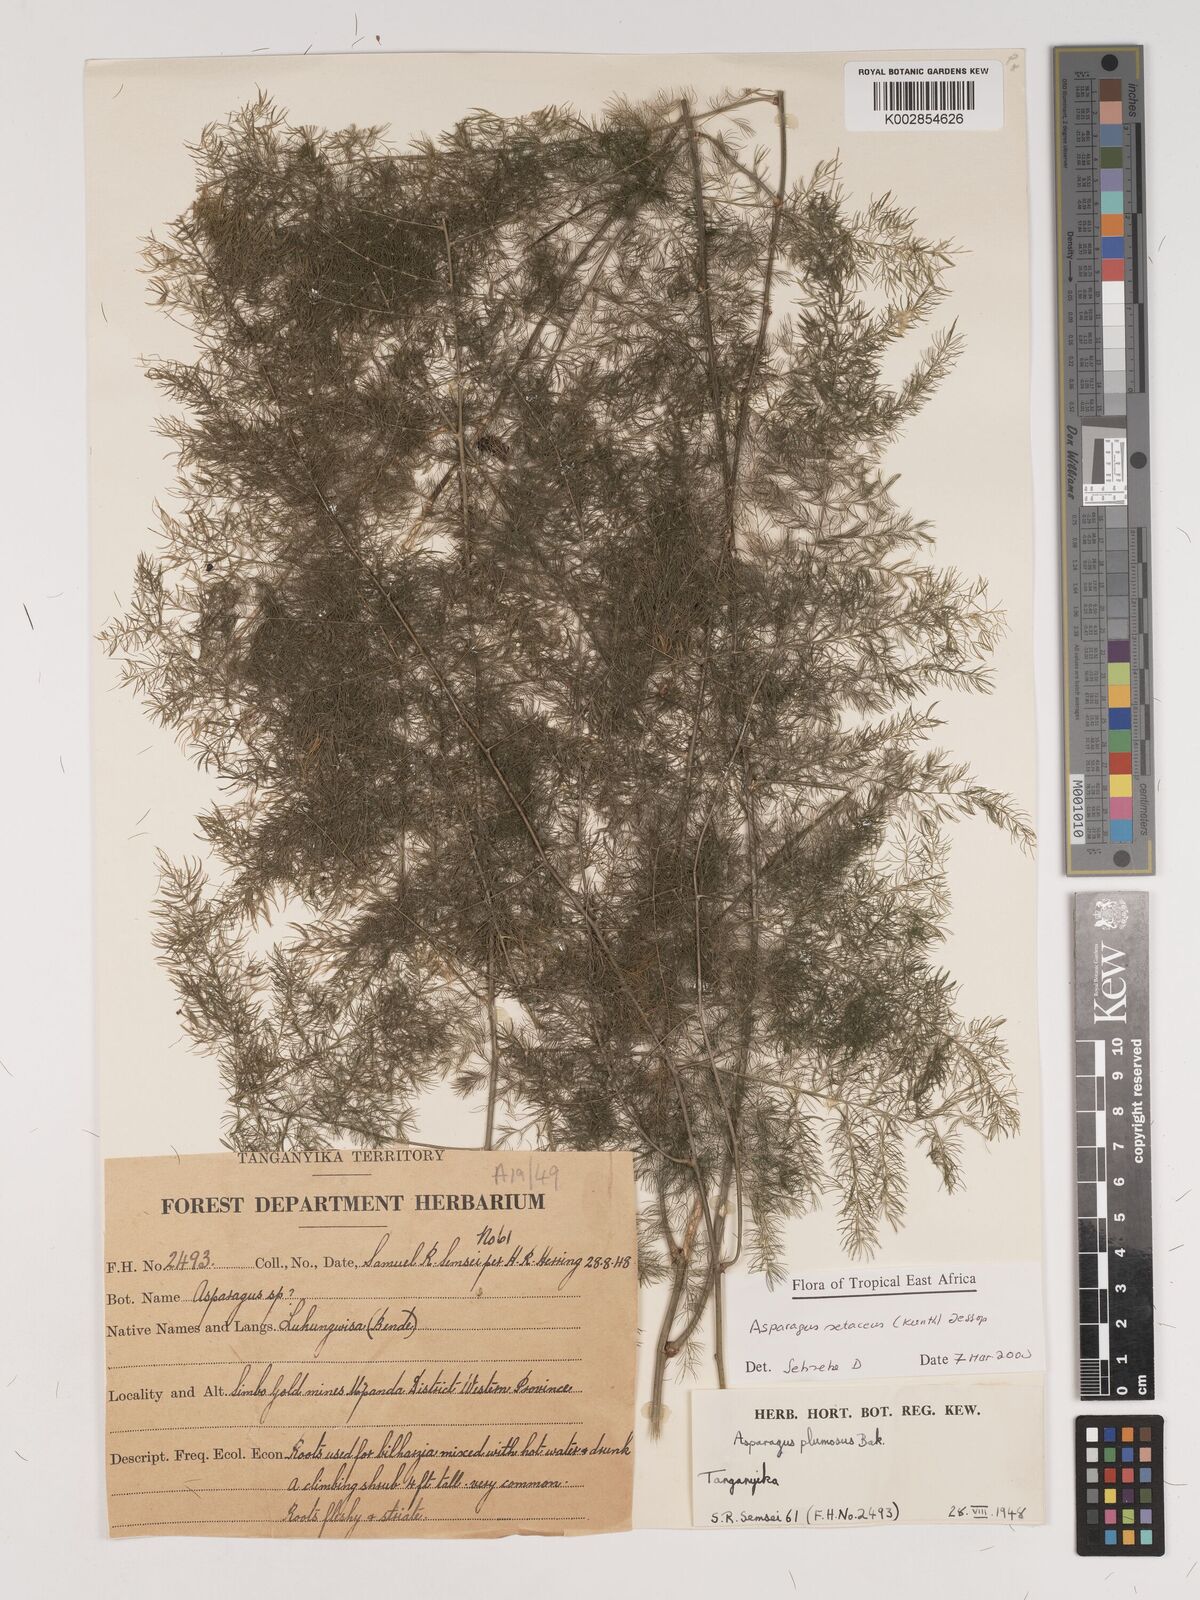 ROYAL BOTANIC GARDENS KEW
K002854626
TANGANYIKA TERRITORY
A19/49
FOREST DEPARTMENT HERBARIUM
No 61
F.H. No. 2493. Coll., No., Date, Samuel R. Semsei per H. R. Herring 28.8.48
Bot. Name Asparagus sp?
Native Names and Langs. Luhungwisa (Bende)
Locality and Alt. Simbo Gold mines Mpanda District Western Province
Descript. Freq. Ecol. Econ. Roots used for bilharzia mixed with hot water & drunk
A climbing shrub 4 ft tall. very common.
Roots fleshy & striate.
Flora of Tropical East Africa
Asparagus setaceus (Kunth) Jessop
Det. Sebsebe D Date 7 Mar 2000
HERB. HORT. BOT. REG. KEW.
Asparagus plumosus Bak.
Tanganyika
S.R. Semsei 61 (F.H. No. 2493) 28. VIII. 1948
inches
Density
Don Williams
centimetres
M001010
Kew
copyright reserved
0 1 2 3 4 5 6 7 8 9 10